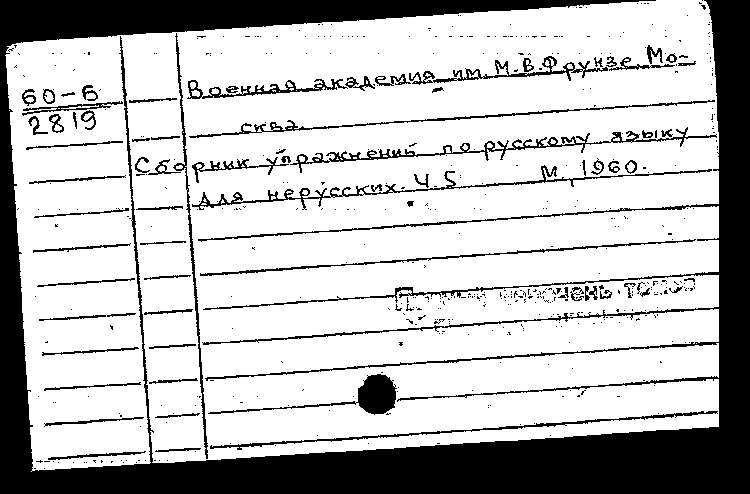 60-6
2819
Военная академия им. М.В.Фрунзе. Мо-
сква.
Сборник упражнений по русскому языку
для нерусских. Ч 5 М., 1960.
перечень томов